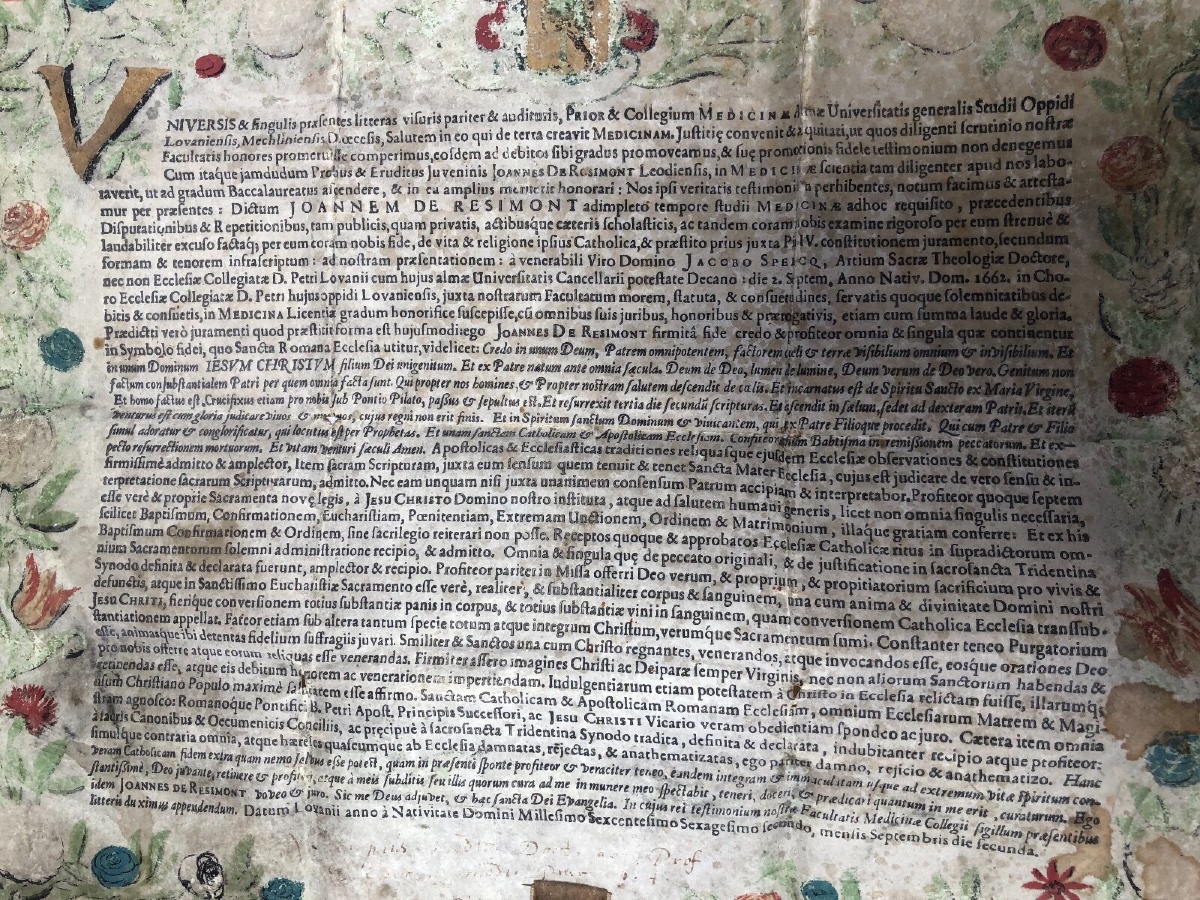 VNIVERSIS & singulis præsentes litteras visuris pariter & audituris, PRIOR & Collegium MEDICINÆ Almæ Universitatis generalis Studii Oppidi
Lovaniensis, Mechliniensis Diœcesis, Salutem in eo qui de terra creavit MEDICINAM. Justitię convenit & æquitati, ut quos diligenti scrutinio nostræ
Facultatis honores promeruisse comperimus, eosdem ad debitos sibi gradus promoveamus, & suę promotionis fidele testimonium non denegemus
Cum itaque jamdudum Probus & Eruditus Juveninis JOANNES DE RESIMONT Leodiensis, in MEDICINÆ scientia tam diligenter apud nos labo-
raverit, ut ad gradum Baccalaureatus ascendere, & in eu amplius meruerit honorari: Nos ipsi veritatis testimonium perhibentes, notum facimus & attesta-
mur per præsentes: Dictum JOANNEM DE RESIMONT adimpleto tempore studii MEDICINÆ adhoc requisito, præcedentibus
Disputationibus & Repetitionibus, tam publicis, quam privatis, actibusque cæteris scholasticis, ac tandem coram nobis examine rigoroso per eum strenuè &
laudabiliter excuso factaq; per eum coram nobis fide, de vita & religione ipsius Catholica, & præstito prius juxta Pii IV. constitutionem juramento, secundum
formam & tenorem infrascriptum: ad nostram præsentationem: à venerabili Viro Domino JACOBO SPEICQ, Artium Sacræ Theologiæ Doctore,
nec non Ecclesiæ Collegiatæ D. Petri Lovanii cum hujus almæ Universitatis Cancellarii potestate Decano: die 2. Septem, Anno Nativ. Dom. 1662. in Cho-
ro Ecclesiæ Collegiatæ D. Petri hujus oppidi Lovaniensis, juxta nostrarum Facultatum morem, statuta, & consuetudines, servatis quoque solemnitatibus de-
bitis & consuetis, in MEDICINA Licentiæ gradum honorifice suscepisse, cū omnibus suis juribus, honoribus & prærogativis, etiam cum summa laude & gloria.
Prædicti verò juramenti quod præstitit forma est hujusmodi: ego JOANNES DE RESIMONT firmitâ fide credo & profiteor omnia & singula quæ continentur
in Symbolo fidei, quo Sancta Romana Ecclesia utitur, videlicet: Credo in unum Deum, Patrem omnipotentem, factorem cæli & terræ visibilium omnium & invisibilium. Et
in unum Dominum IESVM CHRISTVM filium Dei unigenitum. Et ex Patre natum ante omnia sæcula. Deum de Deo, lumen de lumine, Deum verum de Deo vero. Genitum non
factum consubstantialem Patri per quem omnia facta sunt. Qui propter nos homines, & Propter nostram salutem descendit de cælis. Et incarnatus est de Spiritu Sancto ex Maria Virgine,
Et homo factus est, Crucifixus etiam pro nobis sub Pontio Pilato, passus & sepultus est. Et resurrexit tertia die secundū scripturas. Et ascendit in cælum, sedet ad dexteram Patris, Et iterū
venturus est cum gloria judicare vivos & mortuos, cujus regni non erit finis. Et in Spiritum sanctum Dominum & vivicantem, qui ex Patre Filioque procedit. Qui cum Patre & Filio
simul adoratur & conglorificatur, qui locutus est per Prophetas. Et unam sanctam Catholicam & Apostolicam Ecclesiam. Confiteor unum Babtisma in remissionem peccatorum. Et ex-
pecto resurrectionem mortuorum. Et vitam venturi sæculi Amen. Apostolicas & Ecclesiasticas traditiones reliquasque ejusdem Ecclesiæ observationes & constitutiones
firmissimè admitto & amplector, Item sacram Scripturam, juxta eum sensum quem tenuit & tenet Sancta Mater Ecclesia, cujus est judicare de vero sensu & in-
terpretatione sacrarum Scripturarum, admitto. Nec eam unquam nisi juxta unanimem consensum Patrum accipiam & interpretabor. Profiteor quoque septem
esse verè & proprie Sacramenta novę legis, à JESU CHRISTO Domino nostro instituta, atque ad salutem humani generis, licet non omnia singulis necessaria,
scilicet Baptismum, Confirmationem, Eucharistiam, Pœnitentiam, Extremam Unctionem, Ordinem & Matrimonium, illaque gratiam conferre: Et ex his
Baptismum Confirmationem & Ordinem, sine sacrilegio reiterari non posse. Receptos quoque & approbatos Ecclesiæ Catholicæ ritus in supradictorum om-
nium Sacramentorum solemni administratione recipio, & admitto. Omnia & singula quę de peccato originali, & de justificatione in sacrosancta Tridentina
Synodo definita & declarata fuerunt, amplector & recipio. Profiteor pariter in Missa offerri Deo verum, & proprium, & propitiatorium sacrificium pro vivis &
defunctis, atque in Sanctissimo Eucharistiæ Sacramento esse verè, realiter, & substantialiter corpus & sanguinem, una cum anima & divinitate Domini nostri
JESU CHRISTI, fierique conversionem totius substantiæ panis in corpus, & totius substantiæ vini in sanguinem, quam conversionem Catholica Ecclesia transsub-
stantiationem appellat. Fateor etiam sub altera tantum specie totum atque integrum Christum, verumque Sacramentum sumi. Constanter teneo Purgatorium
esse, animasque ibi detentas fidelium suffragiis juvari. Smiliter & Sanctos una cum Christo regnantes, venerandos, atque invocandos esse, eosque orationes Deo
pro nobis offerre atque eorum reliquas esse venerandas. Firmiter assero imagines Christi ac Deiparæ semper Virginis, nec non aliorum Sanctorum habendas &
retinendas esse, atque eis debitum honorem ac venerationem impertiendam. Indulgentiarum etiam potestatem à Christo in Ecclesia relictam fuisse, illarumq;
usum Christiano Populo maximè salutarem esse affirmo. Sanctam Catholicam & Apostolicam Romanam Ecclesiam, omnium Ecclesiarum Matrem & Magi-
stram agnosco: Romanoque Pontifici B. Petri Apost. Principis Successori, ac JESU CHRISTI Vicario veram obedientiam spondeo ac juro. Cætera item omnia
à sacris Canonibus & Oecumenicis Conciliis, ac præcipuè à sacrosancta Tridentina Synodo tradita, definita & declarata, indubitanter recipio atque profiteor:
simulque contraria omnia, atque hæreses quascumque ab Ecclesia damnatas, rejectas, & anathematizatas, ego pariter damno, rejicio & anathematizo. Hanc
veram Catholicam fidem extra quam nemo salvus esse potest, quam in præsenti sponte profiteor & veraciter teneo, eandem integram & immaculatam usque ad extremum vitæ spiritum con-
stantissimè, Deo juvante, retinere & profiteri, atque à meis subditis seu illis quorum cura ad me in munere meo spectabit, teneri, doceri, & prædicari quantum in me erit, curaturum. Ego
idem JOANNES DE RESIMONT voveo & juro. Sic me Deus adjuvet, & hæc sancta Dei Evangelia. In cujus rei testimonium nostræ Facultatis Medicinæ Collegii sigillum præsentibus
litteris duximus appendendum. Datum Lovanii anno à Nativitate Domini Millesimo Sexcentesimo Sexagesimo secundo, mensis Septembris die secunda.